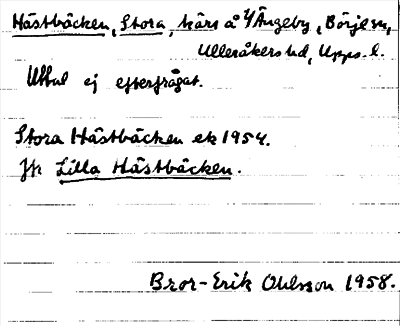 Hästbäcken, Stora, kärr å Ängeby, Börje sn,
Ulleråkers hd, Upps. l.
Uttal ej efterfrågat.
Stora Hästbäcken ek 1954.
Jfr Lilla Hästbäcken.
Bror-Erik Ohlsson 1958.